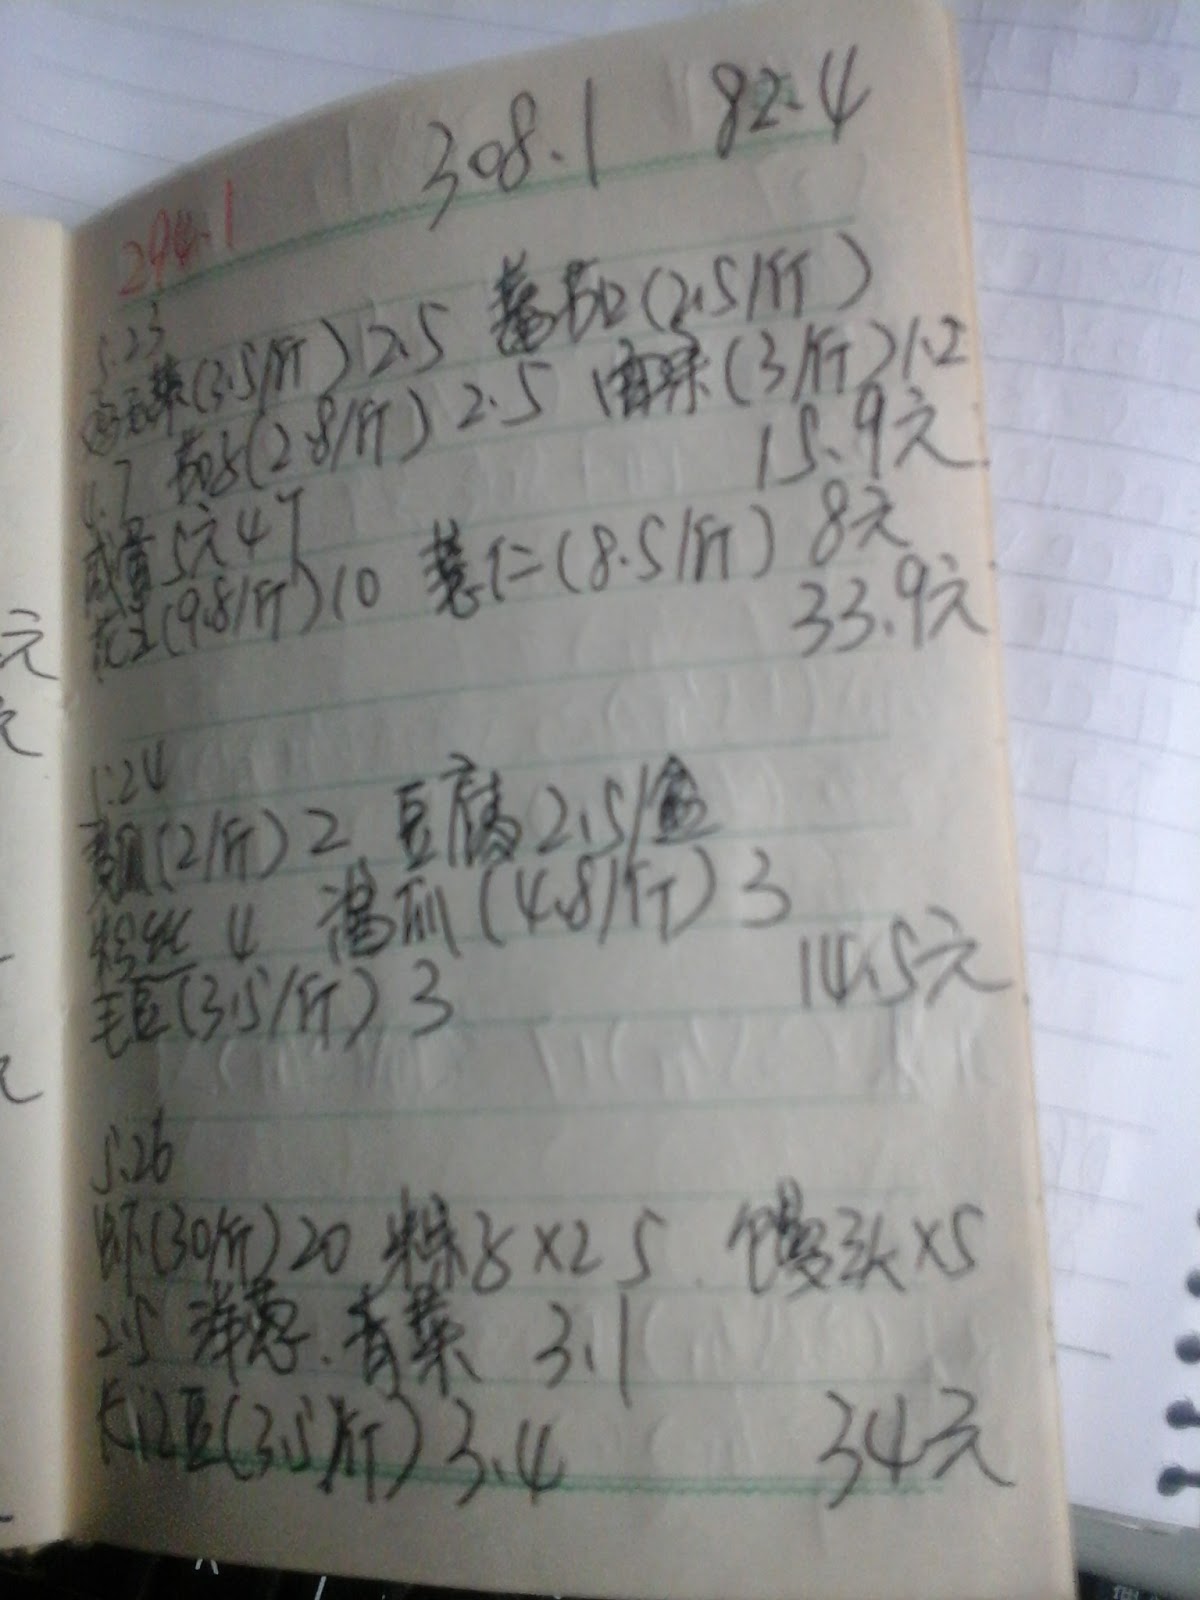 308.1 82.4
294.1
5.23
菜(3.5/斤)2.5 (2.5/斤)
4.7 茄子(2.8/斤)2.5 (3/斤)1.2
15.9元
咸蛋5元4个
花生(9.8/斤)10 薏仁(8.5/斤)8元
33.9元
5.24
(2/斤)2 豆腐2.5/盒
粉丝 4 (4.8/斤)3
毛豆(3.5/斤)3 14.5元
5.26
虾(30/斤)20 粽子×2 5. 馒头×5
2.5 洋葱.青菜 3.1
长江豆(3.5/斤)3.4 34元
元
元
元